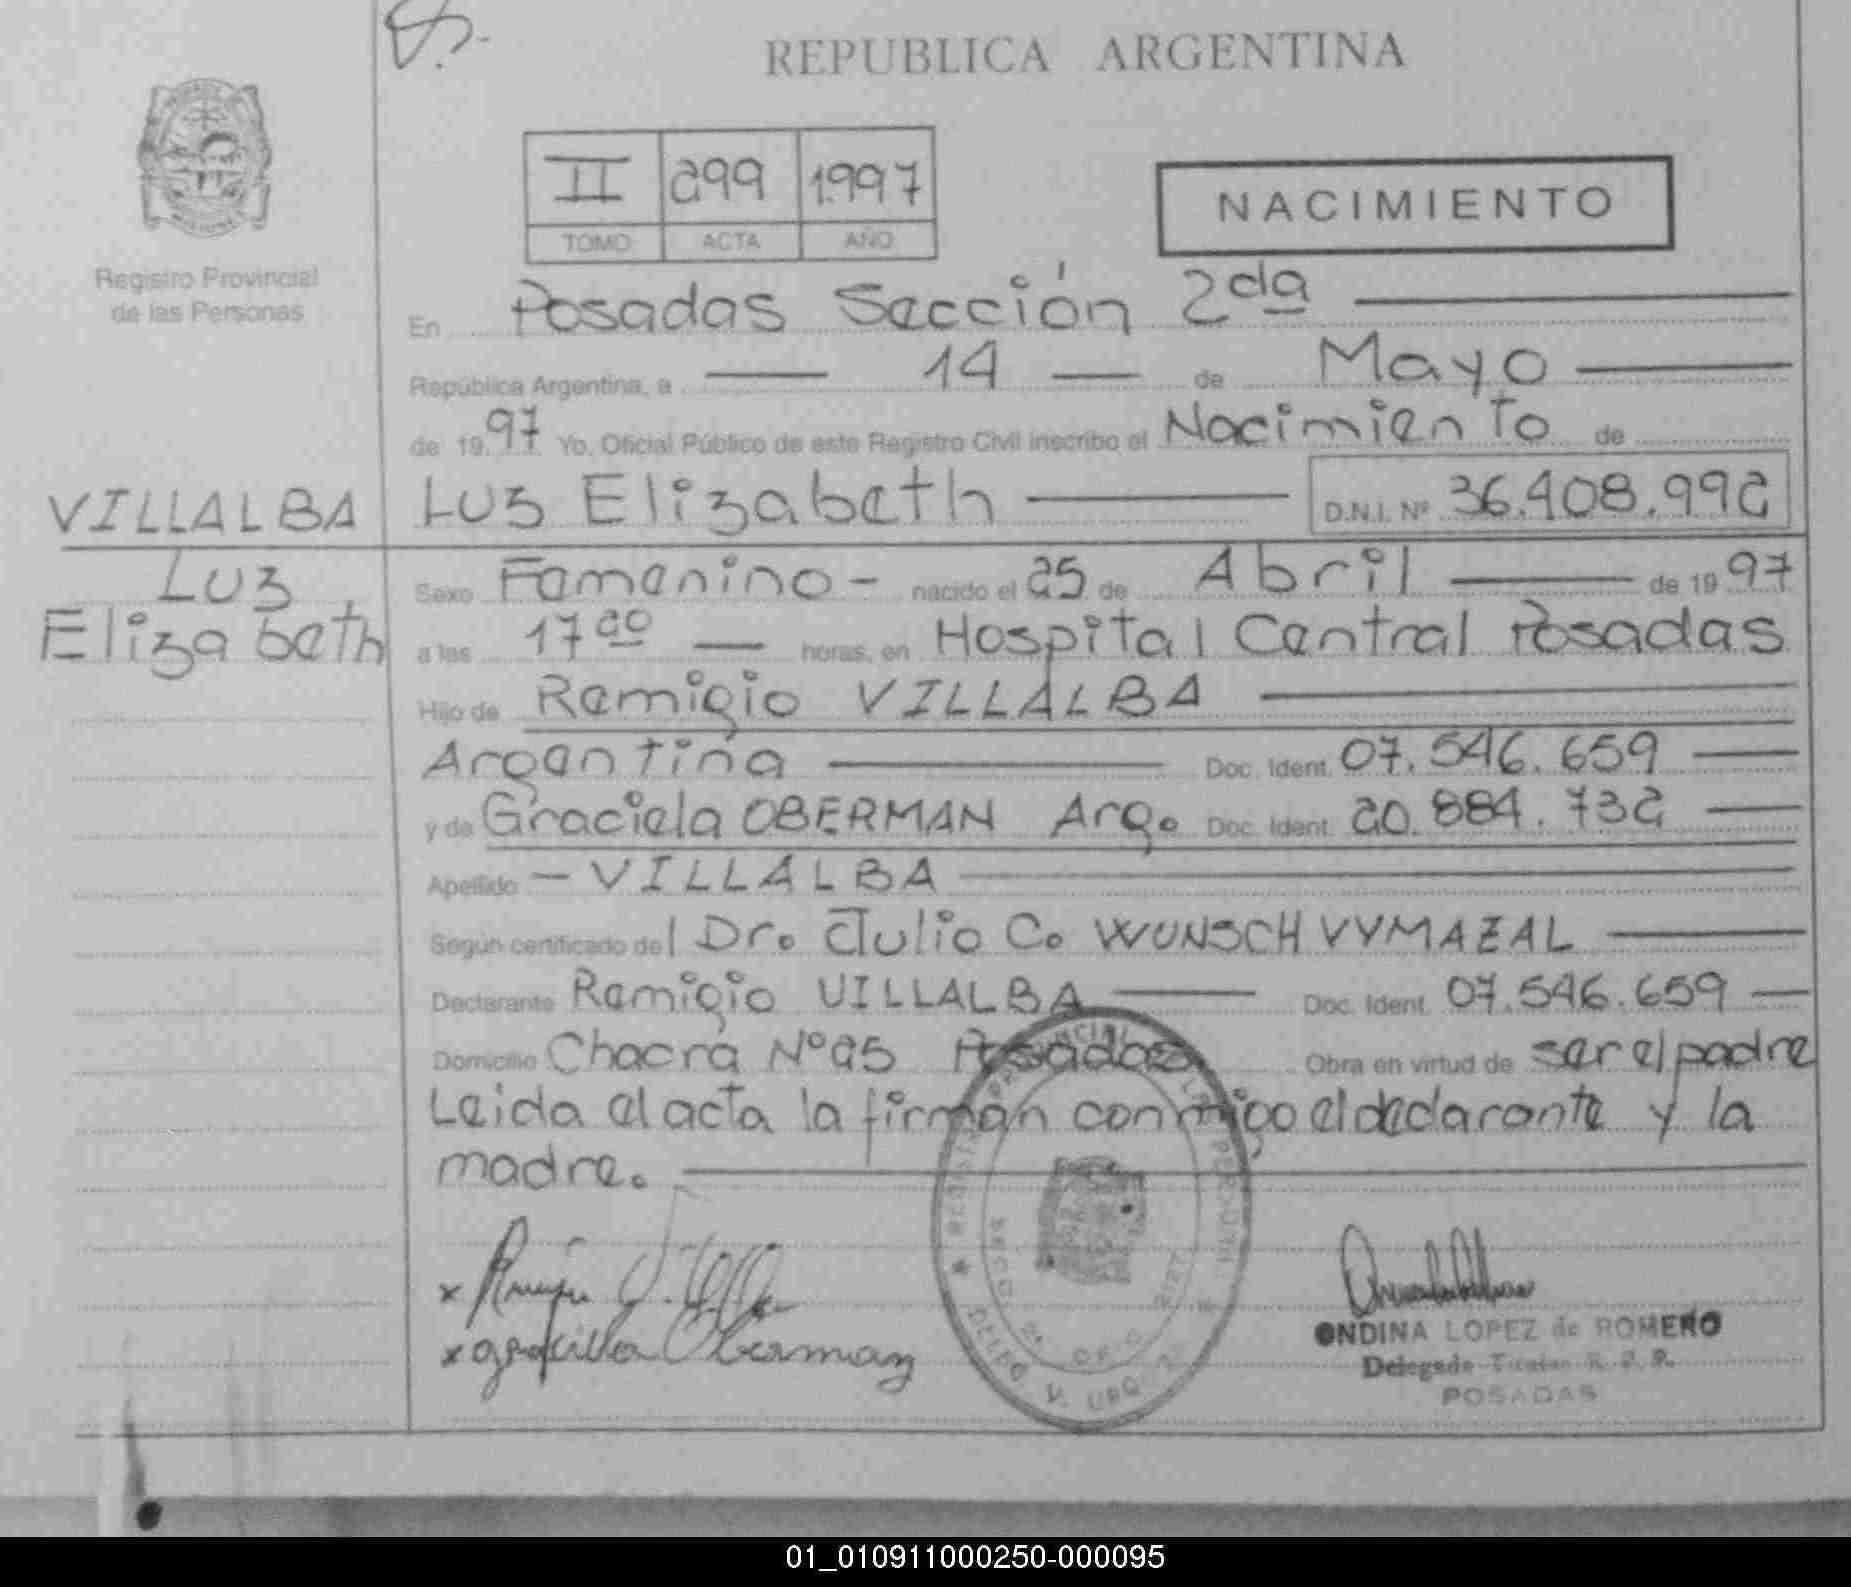 REPUBLICA ARGENTINA
II 299 1997
TOMO ACTA AÑO
NACIMIENTO
Registro Provincial
de las Personas
En Posadas Sección 2da
República Argentina, a 14 de Mayo
de 1997 Yo, Oficial Público de este Registro Civil inscribo el Nacimiento de
VILLALBA
Luz
Elizabeth
Luz Elizabeth D.N.I. Nº 36.408.992
Sexo Femenino - nacido el 25 de Abril de 1997
a las 17 20 horas, en Hospital Central Posadas
Hijo de Remigio VILLALBA
Argentina Doc. Ident. 07.546.659
y de Graciela OBERMAN Arg. Doc. Ident. 20.884.732
Apellido - VILLALBA
Según certificado del Dr. Julio C. WUNSCH VYMAZAL
Declarante Remigio VILLALBA Doc. Ident. 07.546.659
Domicilio Chacra Nº 25 Posadas Obra en virtud de ser el padre
Leida el acta la firman conmigo el declarante y la
madre.
x
x Oberman
ONDINA LOPEZ de ROMERO
Delegada Titular R. P. P.
POSADAS
01_010911000250-000095